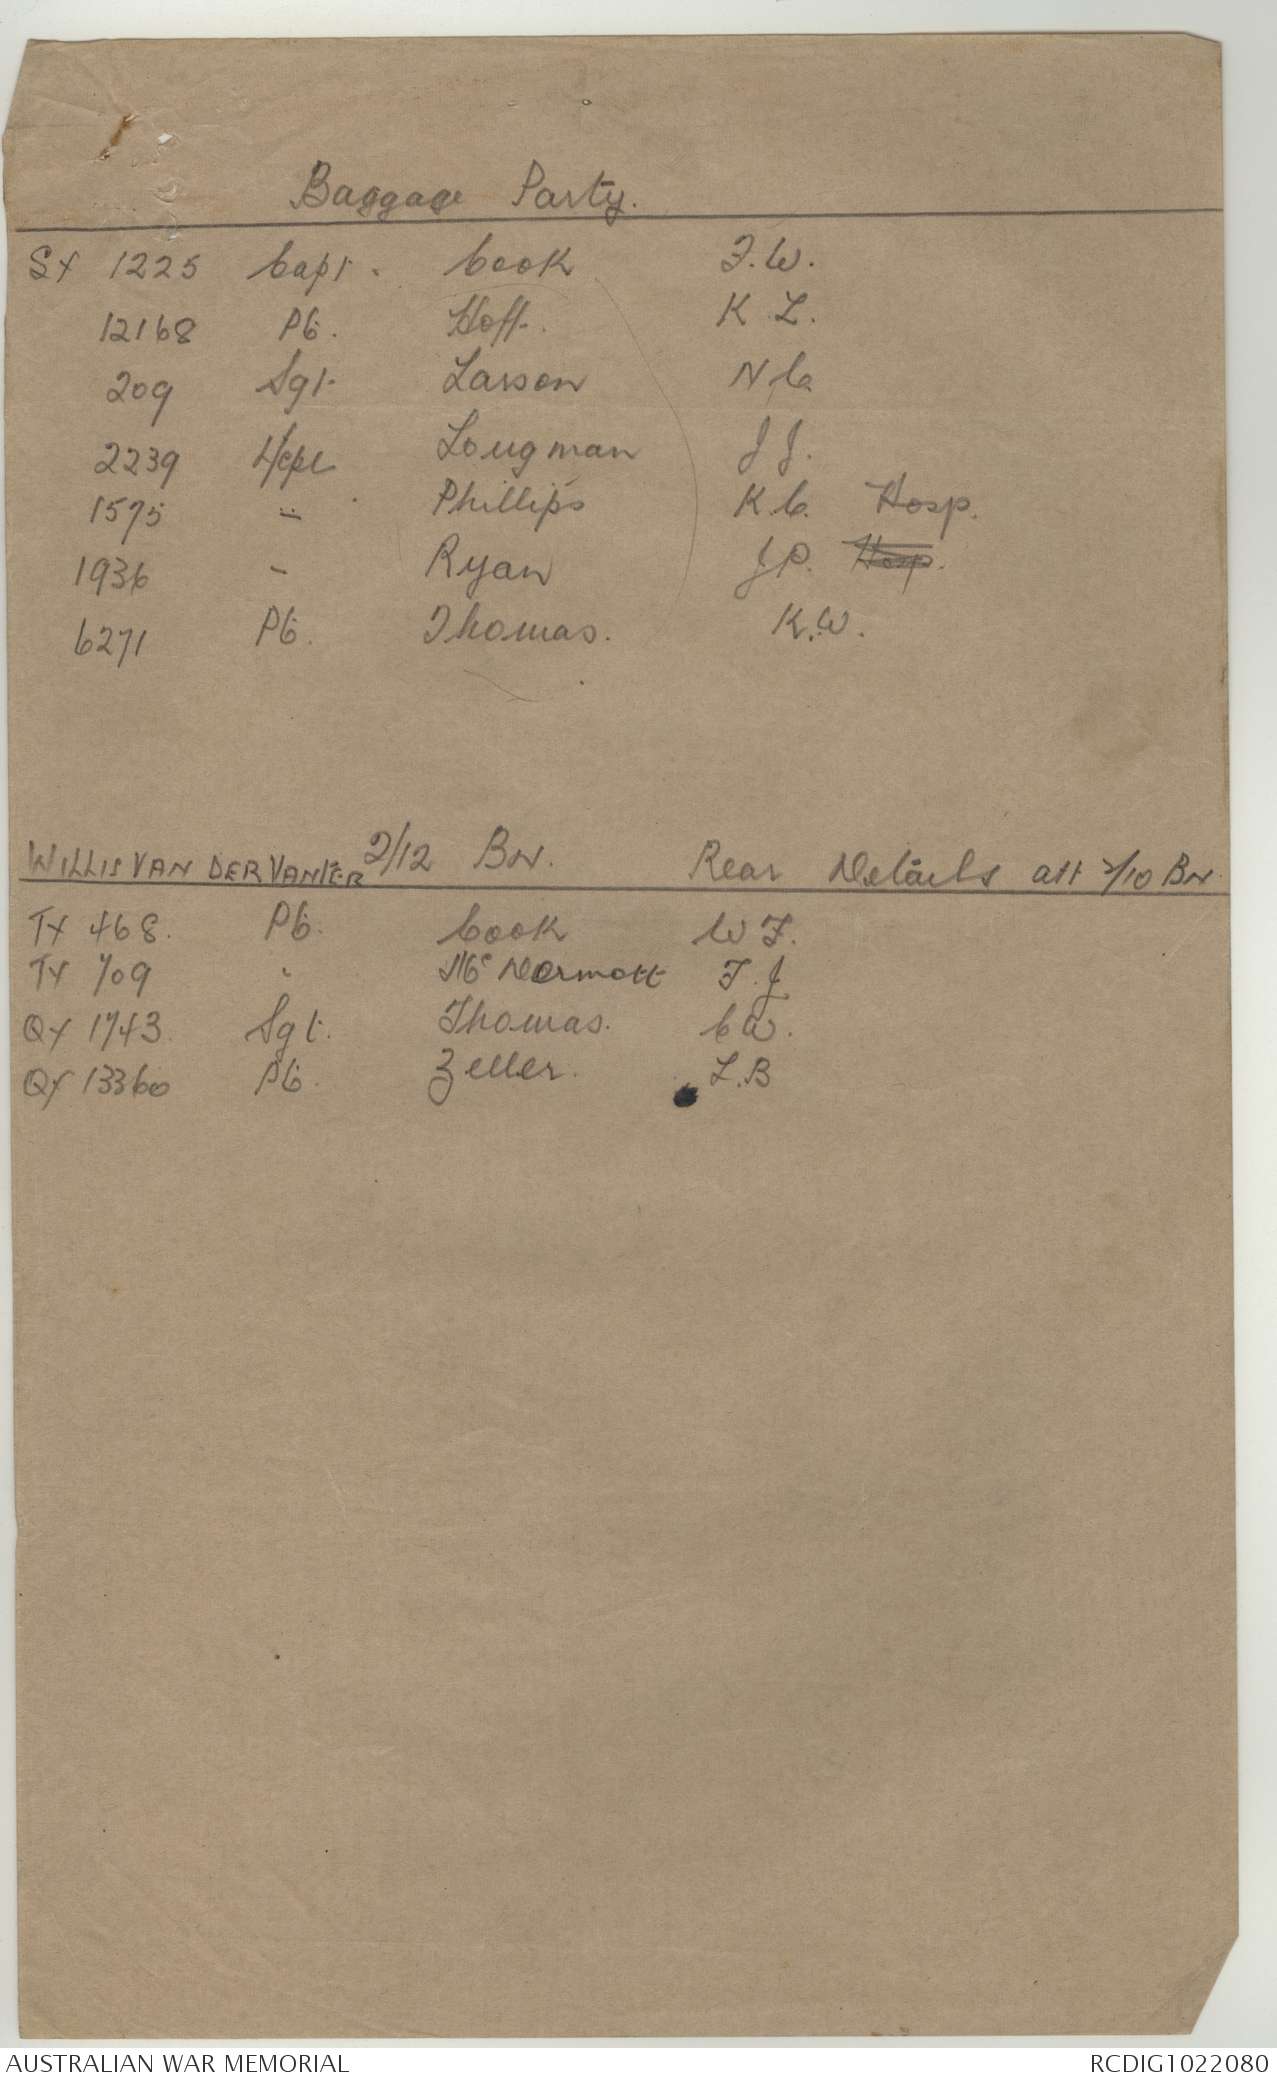 Baggage Party.
SX 1225 Capt. Cook F.W.
12168 Pte. Hoff. K L.
209 Sgt. Larson N C
2239 L/Cpl Lougman J J.
1575 " Phillips K.C. Hosp.
1936 " Ryan J P. Hosp.
6271 Pte. Thomas. K.W.
WILLIS VAN DER VANTER 2/12 BN. Rear Details att 2/10 BN.
TX 468. Pte. Cook W F.
TX 709 " McDermott F. J
QX 1743 Sgt. Thomas. C W.
QX 13360 Pte. Zeller. L.B
AUSTRALIAN WAR MEMORIAL RCDIG1022080